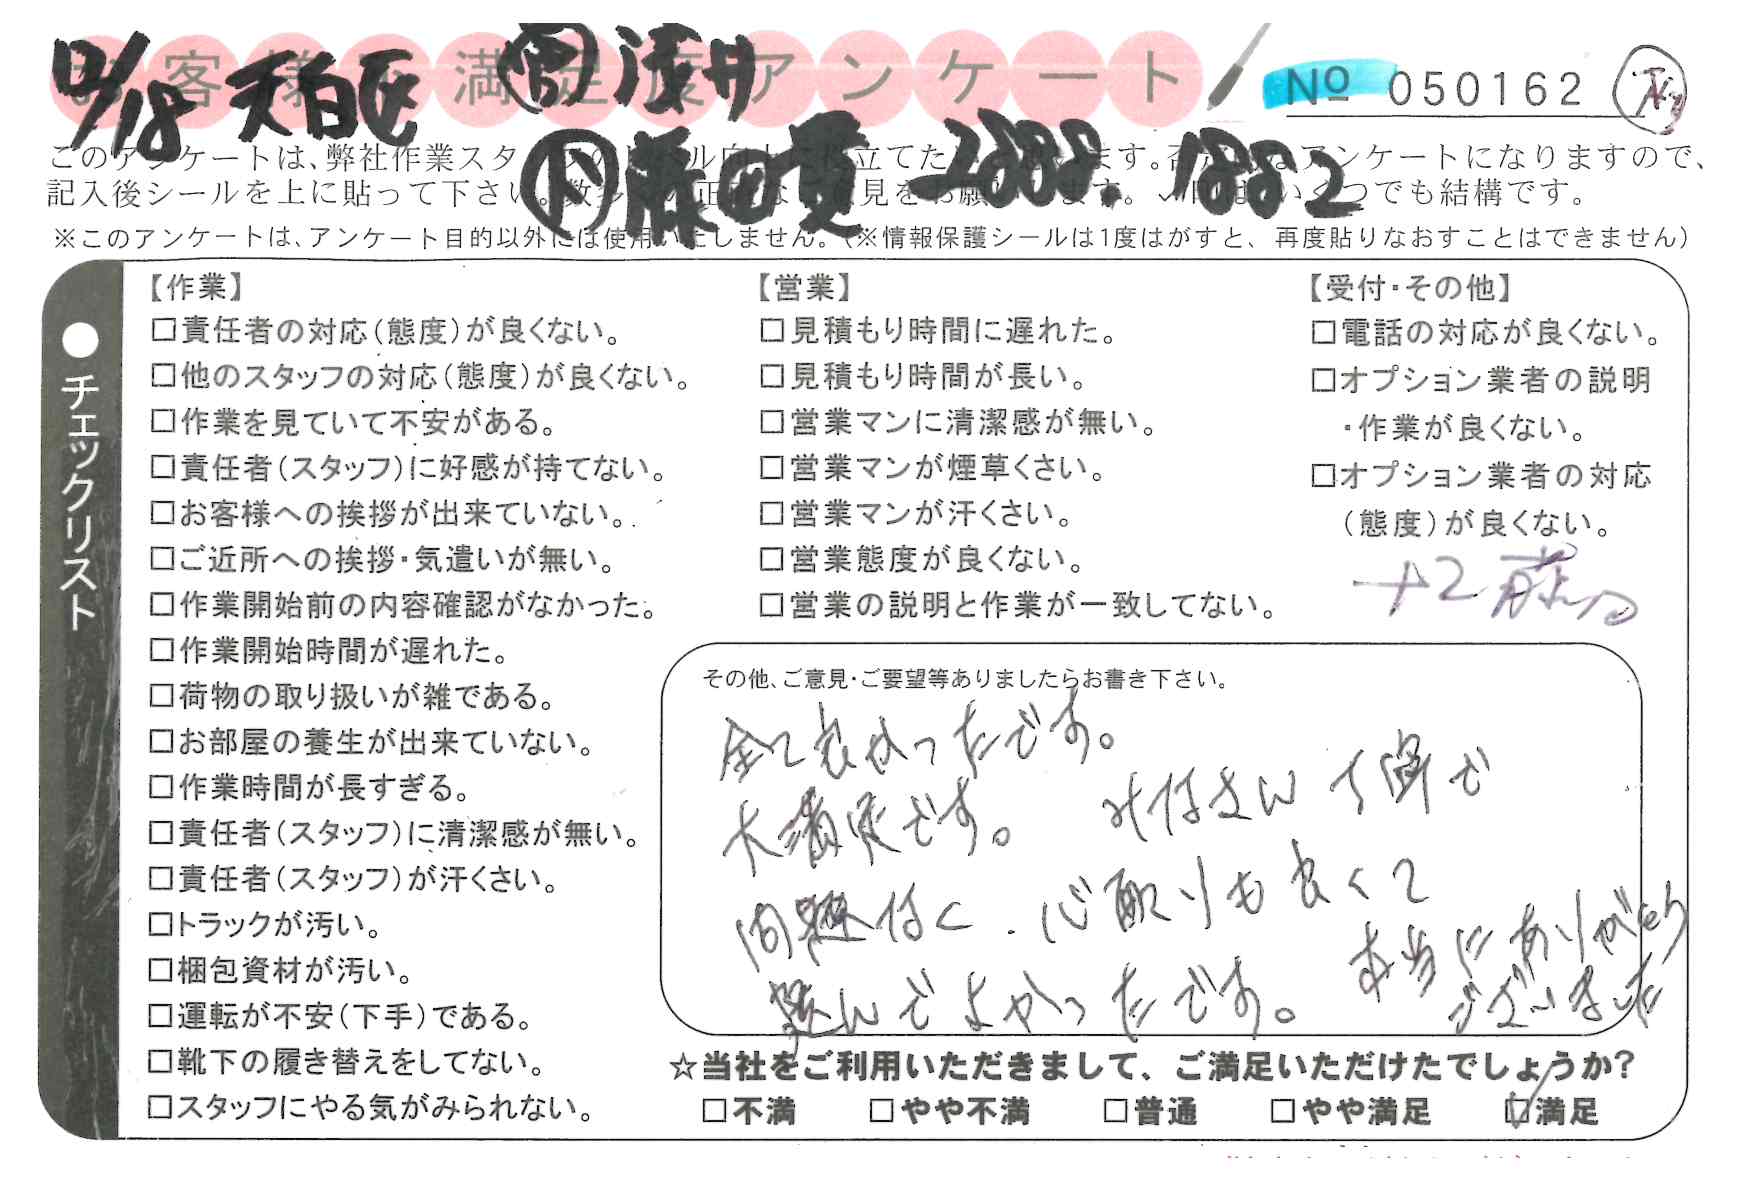 お客様満足度アンケート
12/18 天白区 営 浅井
No 050162
藤田貫 2888 1882
このアンケートは、弊社作業スタッフのレベル向上に役立てたいと思います。否定的なアンケートになりますので、
記入後シールを上に貼って下さい。数多くの正直なご意見をお願いします。✓印はいくつでも結構です。
※このアンケートは、アンケート目的以外には使用いたしません。(※情報保護シールは1度はがすと、再度貼りなおすことはできません)
●チェックリスト
【作業】
□責任者の対応(態度)が良くない。
□他のスタッフの対応(態度)が良くない。
□作業を見ていて不安がある。
□責任者(スタッフ)に好感が持てない。
□お客様への挨拶が出来ていない。
□ご近所への挨拶・気遣いが無い。
□作業開始前の内容確認がなかった。
□作業開始時間が遅れた。
□荷物の取り扱いが雑である。
□お部屋の養生が出来ていない。
□作業時間が長すぎる。
□責任者(スタッフ)に清潔感が無い。
□責任者(スタッフ)が汗くさい。
□トラックが汚い。
□梱包資材が汚い。
□運転が不安(下手)である。
□靴下の履き替えをしてない。
□スタッフにやる気がみられない。
【営業】
□見積もり時間に遅れた。
□見積もり時間が長い。
□営業マンに清潔感が無い。
□営業マンが煙草くさい。
□営業マンが汗くさい。
□営業態度が良くない。
□営業の説明と作業が一致してない。
【受付・その他】
□電話の対応が良くない。
□オプション業者の説明
・作業が良くない。
□オプション業者の対応
(態度)が良くない。
+2 藤田
その他、ご意見・ご要望等ありましたらお書き下さい。
全て良かったです。
大満足です。 みなさん丁寧で
問題なく、心配りも良くて
頼んでよかったです。 本当にありがとう
ございました
☆当社をご利用いただきまして、ご満足いただけたでしょうか?
□不満 □やや不満 □普通 □やや満足 ☑満足